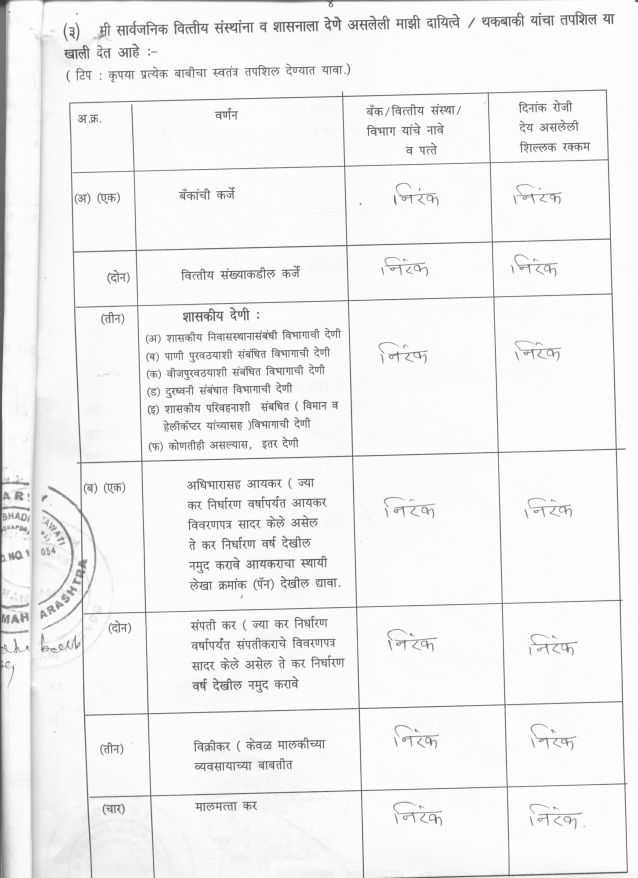 ४
(३) मी सार्वजनिक वित्तीय संस्थांना व शासनाला देणे असलेली माझी दायित्वे / थकबाकी यांचा तपशिल या
खाली देत आहे :-
( टिप : कृपया प्रत्येक बाबीचा स्वतंत्र तपशिल देण्यात यावा.)
अ.क्र.
वर्णन
बँक/वित्तीय संस्था/
विभाग यांचे नावे
व पत्ते
दिनांक रोजी
देय असलेली
शिल्लक रक्कम
(अ) (एक)
बँकांची कर्जे
निरंक
निरंक
(दोन)
वित्तीय संख्याकडील कर्जे
निरंक
निरंक
(तीन)
शासकीय देणी :
(अ) शासकीय निवासस्थानासंबंधी विभागाची देणी
(ब) पाणी पुरवठयाशी संबंधित विभागाची देणी
(क) वीजपुरवठयाशी संबंधित विभागाची देणी
(ड) दुरध्वनी संबंघात विभागाची देणी
(इ) शासकीय परिवहनाशी संबधित ( विमान व
हेलीकॅप्टर यांच्यासह )विभागाची देणी
(फ) कोणतीही असल्यास, इतर देणी
निरंक
निरंक
(ब) (एक)
अधिभारासह आयकर ( ज्या
कर निर्धारण वर्षापर्यंत आयकर
विवरणपत्र सादर केले असेल
ते कर निर्धारण वर्ष देखील
नमुद करावे आयकराचा स्थायी
लेखा क्रमांक (पॅन) देखील द्यावा.
निरंक
निरंक
(दोन)
संपती कर ( ज्या कर निर्धारण
वर्षापर्यंत संपतीकराचे विवरणपत्र
सादर केले असेल ते कर निर्धारण
वर्ष देखील नमुद करावे
निरंक
निरंक
(तीन)
विक्रीकर ( केवळ मालकीच्या
व्यवसायाच्या बाबतीत
निरंक
निरंक
(चार)
मालमत्ता कर
निरंक
निरंक.